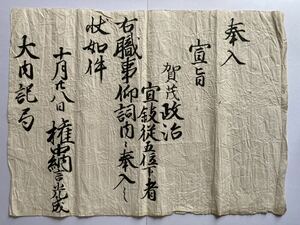 奉入
宣旨
賀茂政治
宜敍從五位下者
右職事仰詞内々奉入之
状如件
十月廿八日 權中納言光成
大内記局